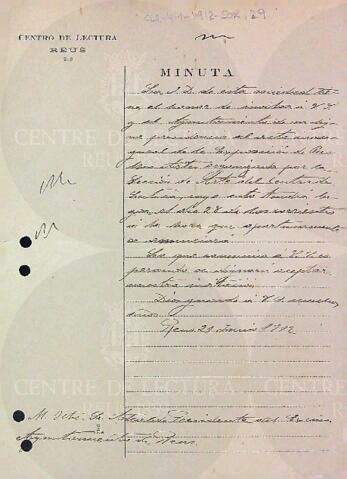 CENTRO DE LECTURA
REUS
MINUTA
La J. D. de esta sociedad tie-
ne el honor de invitar á V. S.
y al Ayuntamiento de su dig-
na presidencia al acto inau-
gural de la Exposición de
organizada por la
Sección de Arte del Centro de
Lectura, cuyo acto tendrá lu-
gar el dia 28 de los corrientes
á la hora que oportunamente
se anunciará.
Lo que comunico á V. S. es-
perando se dignará aceptar
nuestra invitación.
Dios guarde á V. S. muchos
años.
Reus 21 Junio 1912
M. Iltre. Sr. Alcalde Presidente del Excmo.
Ayuntamiento de Reus.
CENTRE DE LECTURA
REUS
CENTRE DE LECTURA